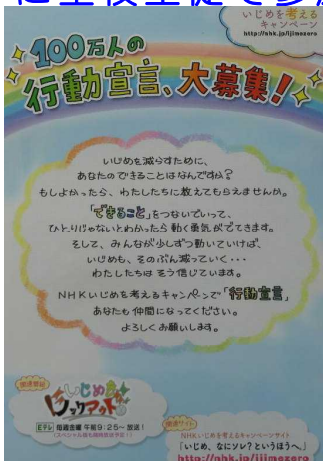 に全校生徒で参加
いじめを考える
キャンペーン
http://nhk.jp/ijimezero
100万人の
行動宣言、大募集!
いじめを減らすために、
あなたのできることはなんですか?
もしよかったら、わたしたちに教えてもらえませんか。
「できること」をつないでいって、
ひとりじゃないとわかったら動く勇気がでてきます。
そして、みんなが少しずつ動いていけば、
いじめも、そのぶん減っていく・・・
わたしたちはそう信じています。
NHKいじめを考えるキャンペーンで「行動宣言」
あなたも仲間になってください。
よろしくお願いします。
関連番組
いじめを
ノックアウト
Eテレ 毎週金曜 午前9:25~放送!
関連サイト
NHKいじめを考えるキャンペーンサイト
「いじめ、なにソレ?というほうへ」
http://nhk.jp/ijimezero